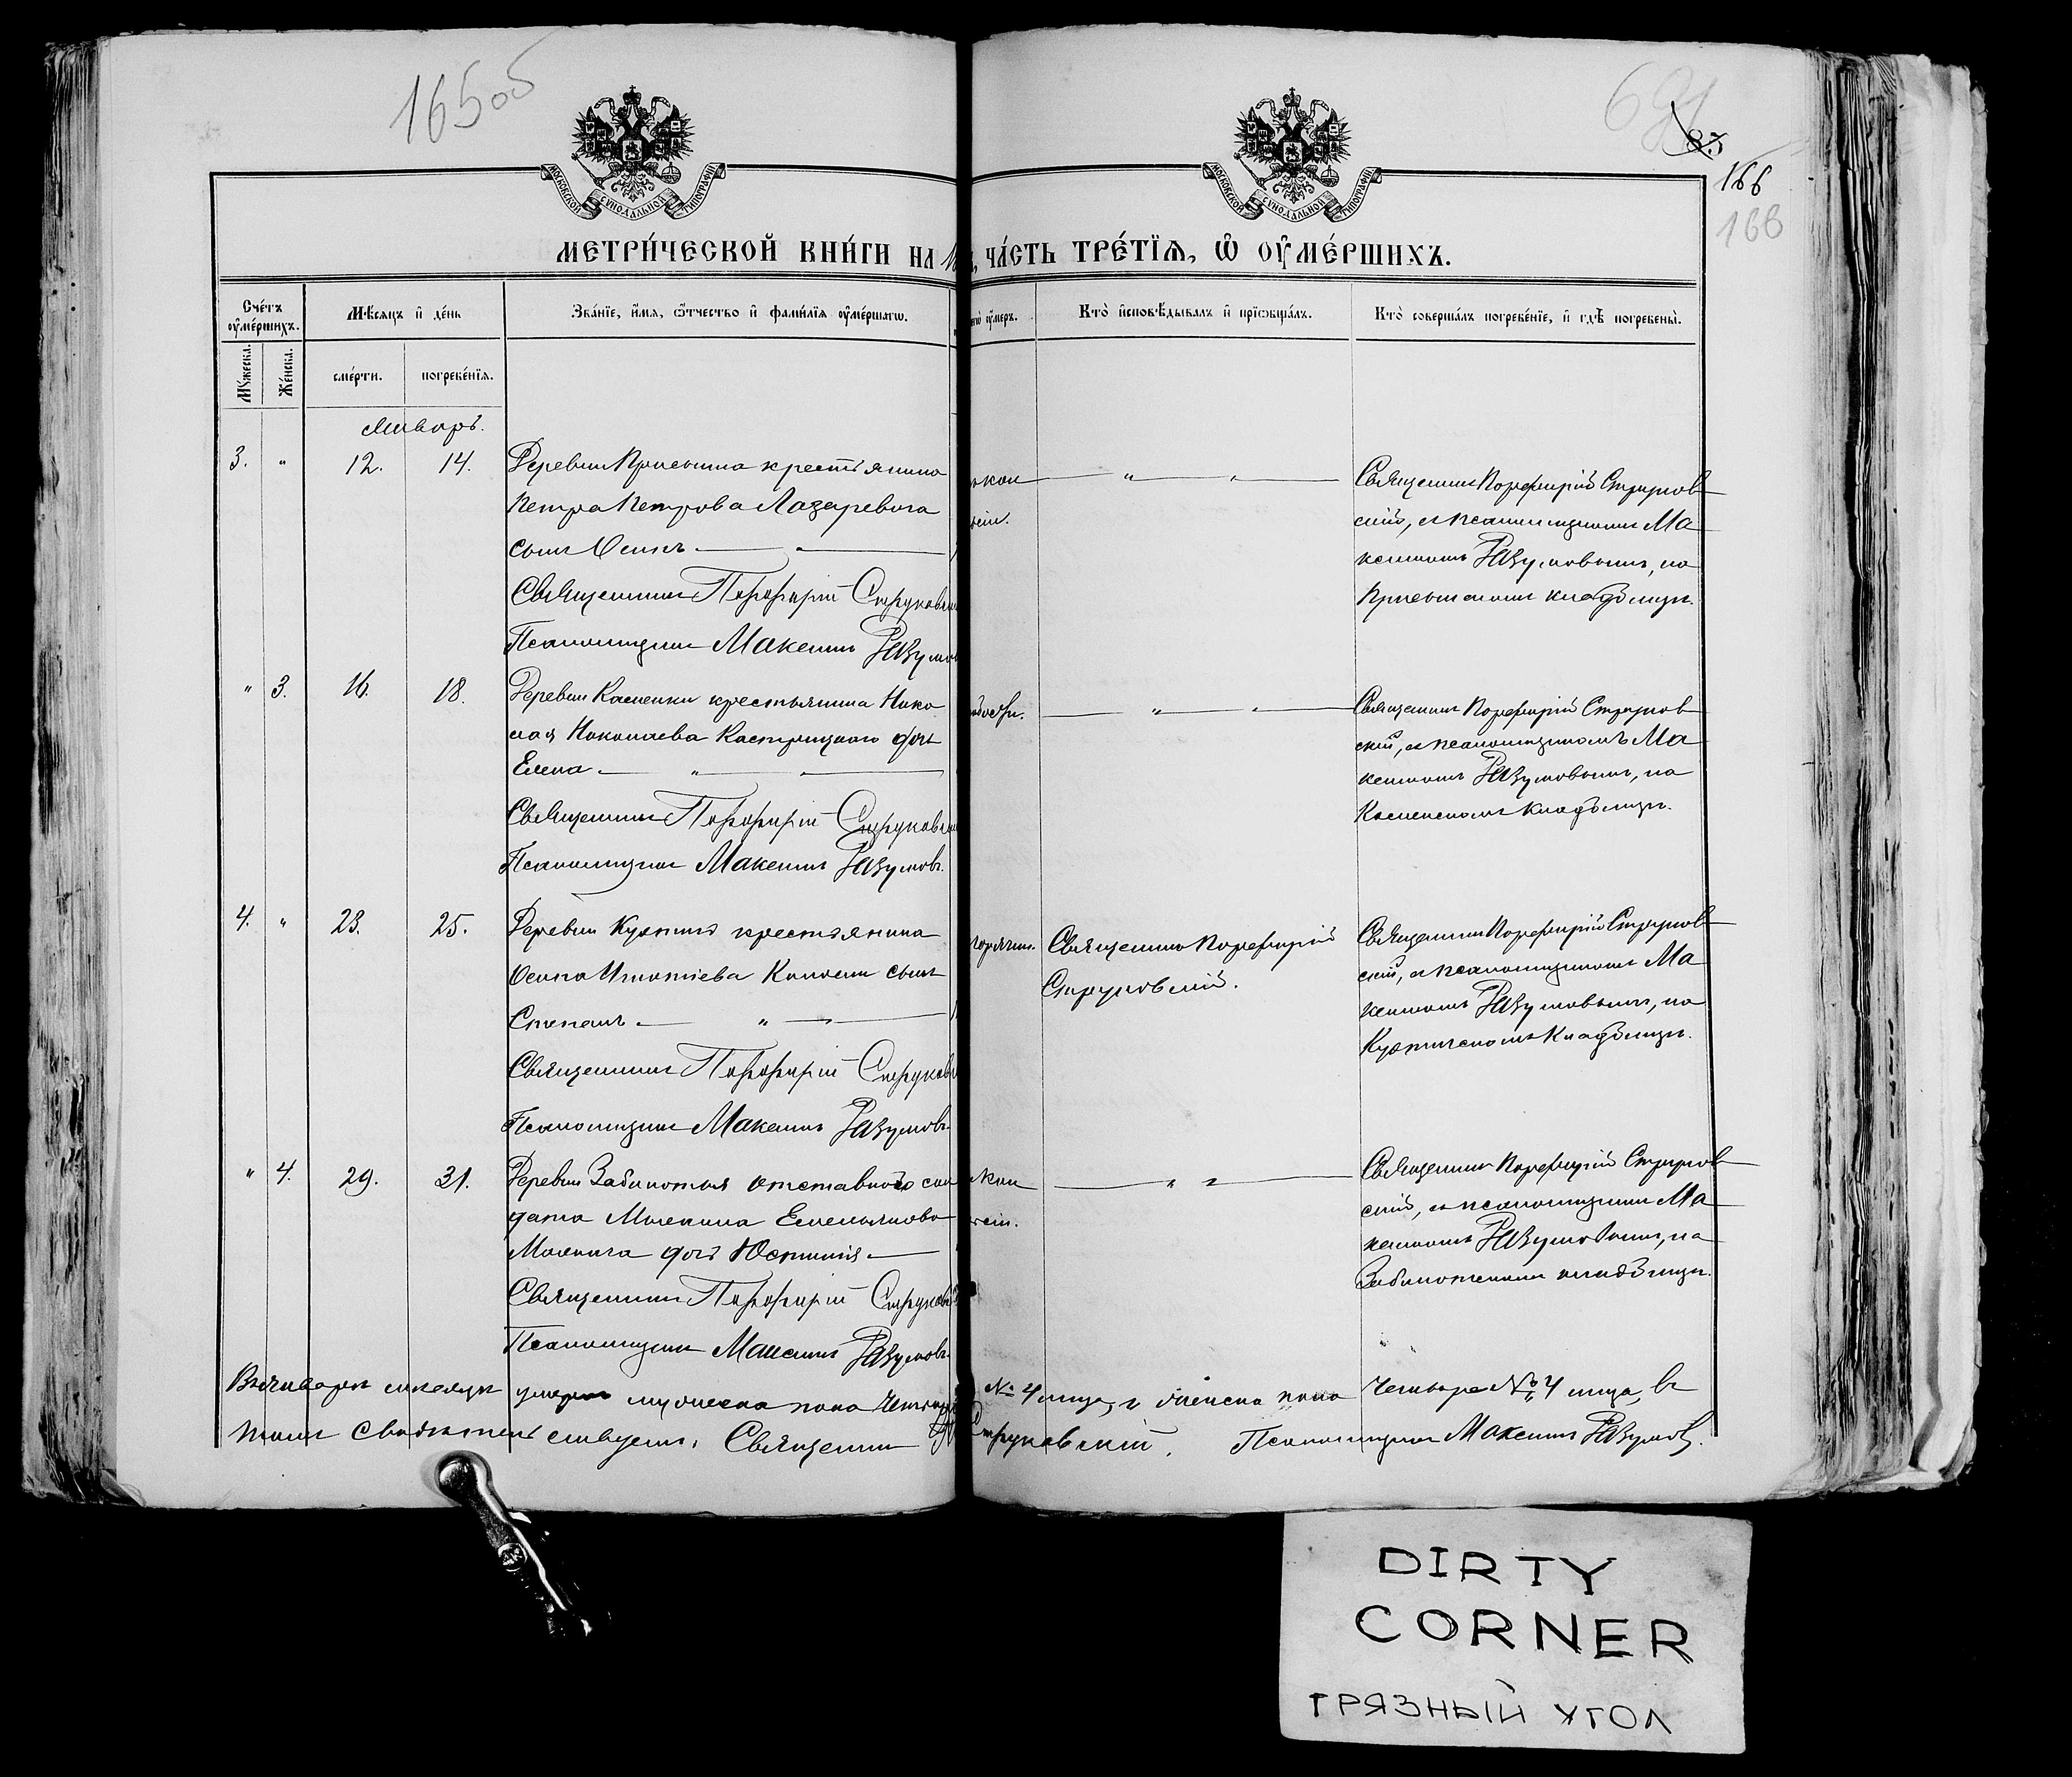 16505
691
83
166
166
МОСКОВСКОЙ СѴНОДАЛЬНОЙ ТИПОГРАФІИ
МОСКОВСКОЙ СѴНОДАЛЬНОЙ ТИПОГРАФІИ
МЕТРИ́ЧЕСКОЙ КНИ́ГИ НА 18
ЧА́СТЬ ТРЕ́ТІѦ, Ѿ ОУ҆МЕ́РШИХЪ.
Сче́тъ оу҆ме́ршихъ.
Мѣсяцъ и҆ де́нь
Зва́нїе, и҆́мя, ѻ҆́тчество и҆ фами́лїя оу҆ме́ршагѡ.
оу҆́меръ.
Кто̀ и҆сповѣ́дывалъ и҆ прїѻбща́лъ.
Кто̀ соверша́лъ погребе́нїе, и҆ гдѣ̀ погребены̀.
Мꙋ́жеска.
Же́нска.
сме́рти.
погребе́нїя.
Январь.
3. " 12. 14. Деревни крестьянина
Петра Петрова Лазаревича
сынъ Осипъ
Священникъ Порфирій Струковскій
Псаломщикъ Максимъ Разумов
Священникъ Порфирій Струков
скій, съ псаломщикомъ Ма
ксимомъ Разумовымъ, на
кладбищѣ.
" 3. 16. 18. Деревни Каменки крестьянина Нико
лая Николаева дочь
Елена "
Священникъ Порфирій Струковскій
Псаломщикъ Максимъ Разумовъ.
Священникъ Порфирій Струков
скій, съ псаломщикомъ Ма
ксимомъ Разумовымъ, на
Каменскомъ кладбищѣ.
4. " 23. 25. Деревни крестьянина
Осипа сынъ
Степанъ "
Священникъ Порфирій Струков
Псаломщикъ Максимъ Разумовъ.
горячки.
Священникъ Порфирій
Струковскій.
Священникъ Порфирій Струков
скій, съ псаломщикомъ Ма
ксимомъ Разумовымъ, на
кладбищѣ.
" 4. 29. 31. Деревни Заболотья отставнаго сол
дата Емельянова
дочь Юстинія
Священникъ Порфирій Струков
Псаломщикъ Максимъ Разумовъ.
Священникъ Порфирій Струков
скій, съ псаломщикомъ Ма
ксимомъ Разумовымъ, на
Заболотскомъ кладбищѣ.
Въ Январѣ мѣсяцѣ умерло мужеска пола четыре № 4 лица, и женска пола четыре № 4 лица, въ
томъ свидѣтельствуемъ: Священникъ Струковскій. Псаломщикъ Максимъ Разумовъ.
DIRTY
CORNER
ГРЯЗНЫЙ УГОЛ